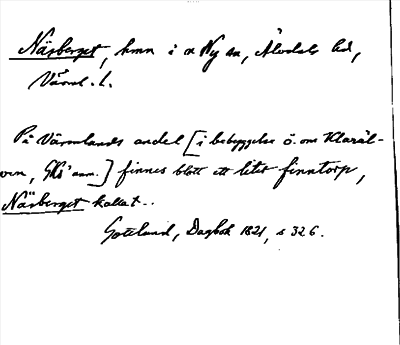 Näsberget, hmn i n Ny sn, Älvdals hd,
Värml. l.
På Värmlands andel [i bebyggelse ö. om Klaräl-
ven, GKs anm.] finnes blott ett litet finntorp,
Näsberget kallat..
Gottlund, Dagbok 1821, s 326.